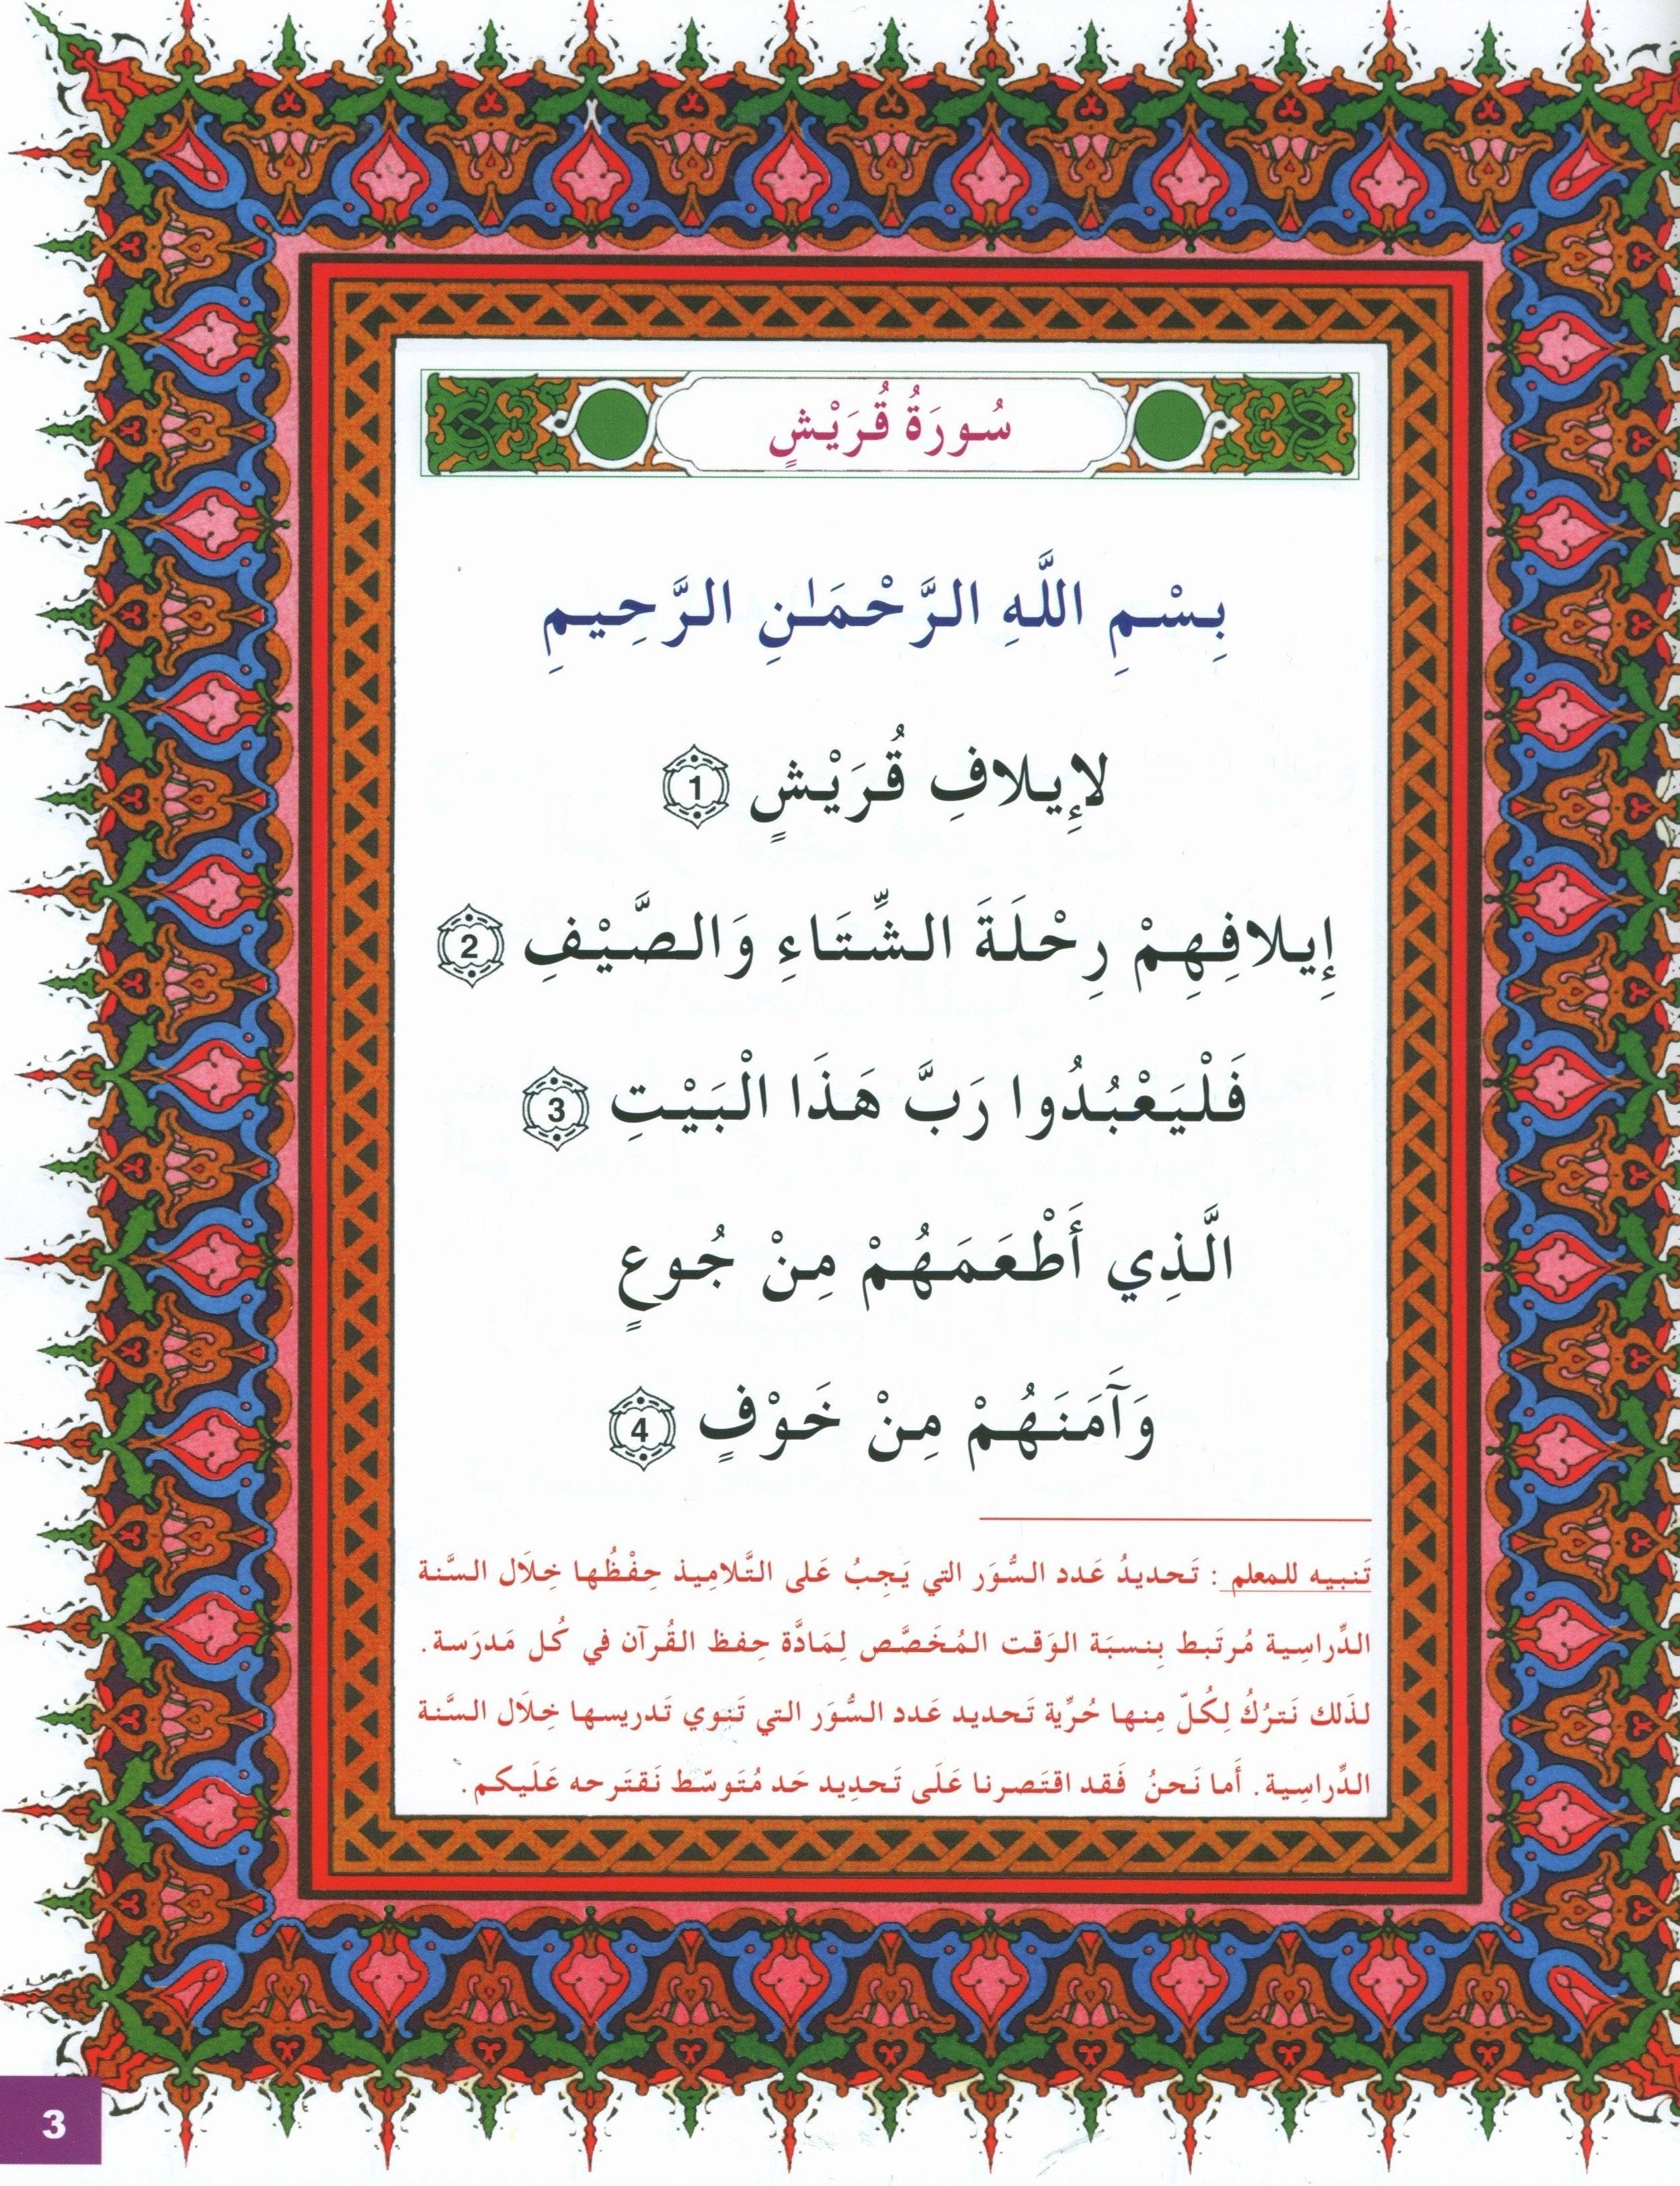 سُورَةُ قُرَيْشٍ
بِسْمِ اللَّهِ الرَّحْمَـٰنِ الرَّحِيمِ
لإِيلافِ قُرَيْشٍ 1
إِيلافِهِمْ رِحْلَةَ الشِّتَاءِ وَالصَّيْفِ 2
فَلْيَعْبُدُوا رَبَّ هَذَا الْبَيْتِ 3
الَّذِي أَطْعَمَهُمْ مِنْ جُوعٍ
وَآمَنَهُمْ مِنْ خَوْفٍ 4
تَنبيه للمعلم : تَحديدُ عَدد السُّوَر التي يَجِبُ عَلى التَّلامِيذ حِفْظُها خِلَال السَّنة
الدِّراسِية مُرتَبط بِنسبَة الوَقت المُخَصَّص لِمَادَّة حِفظ القُرآن في كُل مَدرَسة.
لذَلك نَترُكُ لِكُلّ مِنها حُرِّية تَحديد عَدد السُّوَر التي تَنوي تَدريسها خِلَال السَّنة
الدِّراسِية. أَما نَحنُ فَقد اقتَصرنا عَلَى تَحدِيد حَد مُتَوسّط نَقتَرحه عَلَيكم.
3